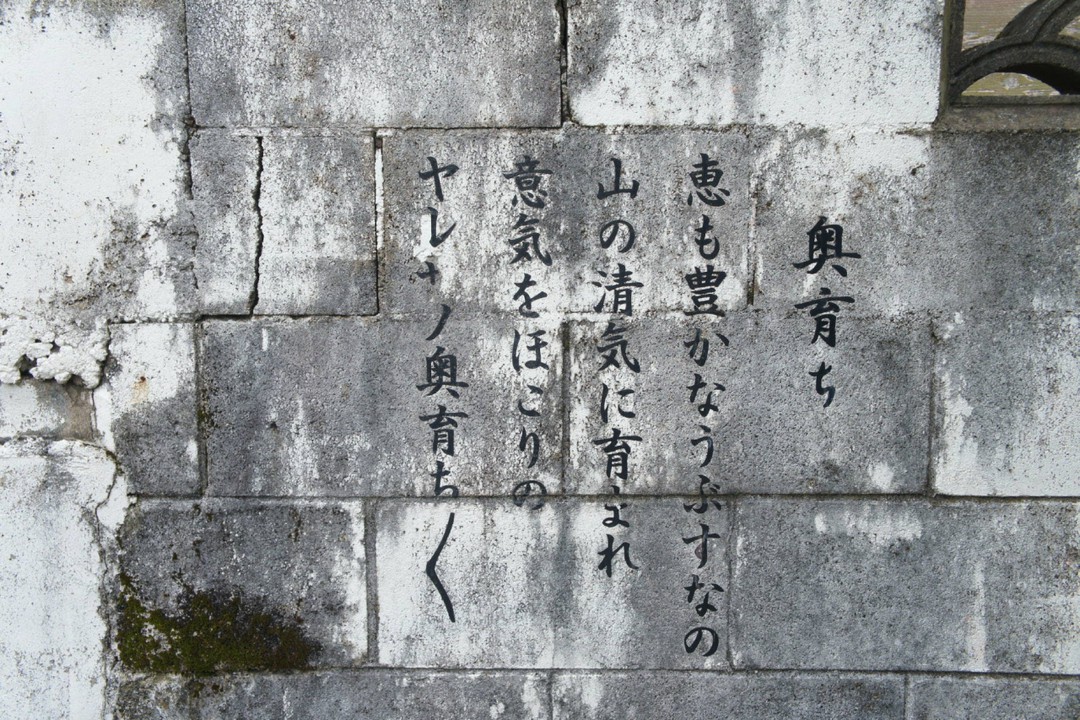 奥育ち
恵も豊かなうぶすなの
山の清気に育まれ
意気をほこりの
ヤレサノ奥育ち〱